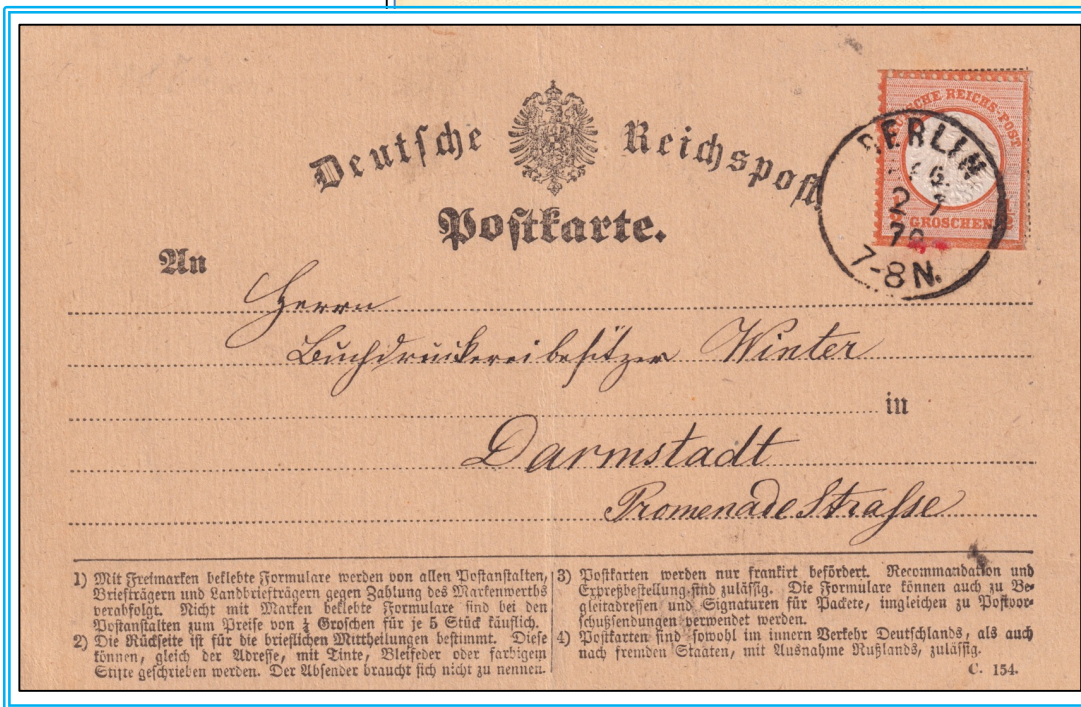 Deutsche Reichspost.
DEUTSCHE REICHS-POST
½ GROSCHEN ½
BERLIN
2 7
7-8 N.
Postkarte.
An
Herrn
Buchdruckereibesitzer Winter
in
Darmstadt
Promenade Strasse
1) Mit Freimarken beklebte Formulare werden von allen Postanstalten,
Briefträgern und Landbriefträgern gegen Zahlung des Markenwerths
verabfolgt. Nicht mit Marken beklebte Formulare sind bei den
Postanstalten zum Preise von ¼ Groschen für je 5 Stück käuflich.
2) Die Rückseite ist für die brieflichen Mittheilungen bestimmt. Diese
können, gleich der Adresse, mit Tinte, Bleifeder oder farbigem
Stifte geschrieben werden. Der Absender braucht sich nicht zu nennen.
3) Postkarten werden nur frankirt befördert. Recommandation und
Expreßbestellung sind zulässig. Die Formulare können auch zu Be-
gleitadressen und Signaturen für Packete, imgleichen zu Postvor-
schußsendungen verwendet werden.
4) Postkarten sind sowohl im innern Verkehr Deutschlands, als auch
nach fremden Staaten, mit Ausnahme Rußlands, zulässig.
C. 154.